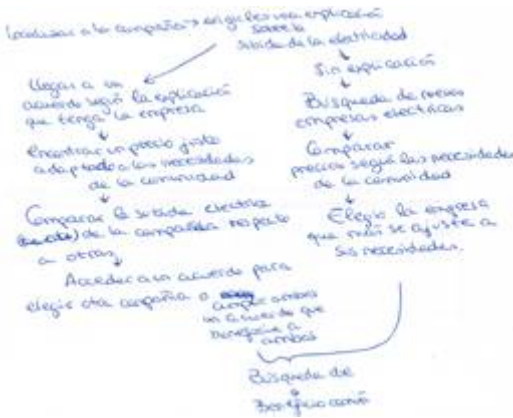 Localizar a la compañía → exigirles una explicación
sobre la
subida de la electricidad
Llegar a un
acuerdo según la explicación
que tenga la empresa
Encontrar un precio justo
adaptado a las necesidades
de la comunidad
Comparar la subida eléctrica
de la compañía respecto
a otras
Acceder a un acuerdo para
elegir otra compañía o
ambos
un acuerdo que
beneficie a
ambos
Sin explicación
Búsqueda de nuevas
empresas eléctricas
Comparar
precios según las necesidades
de la comunidad
Elegir la empresa
que más se ajuste a
sus necesidades.
Búsqueda de
Beneficio común